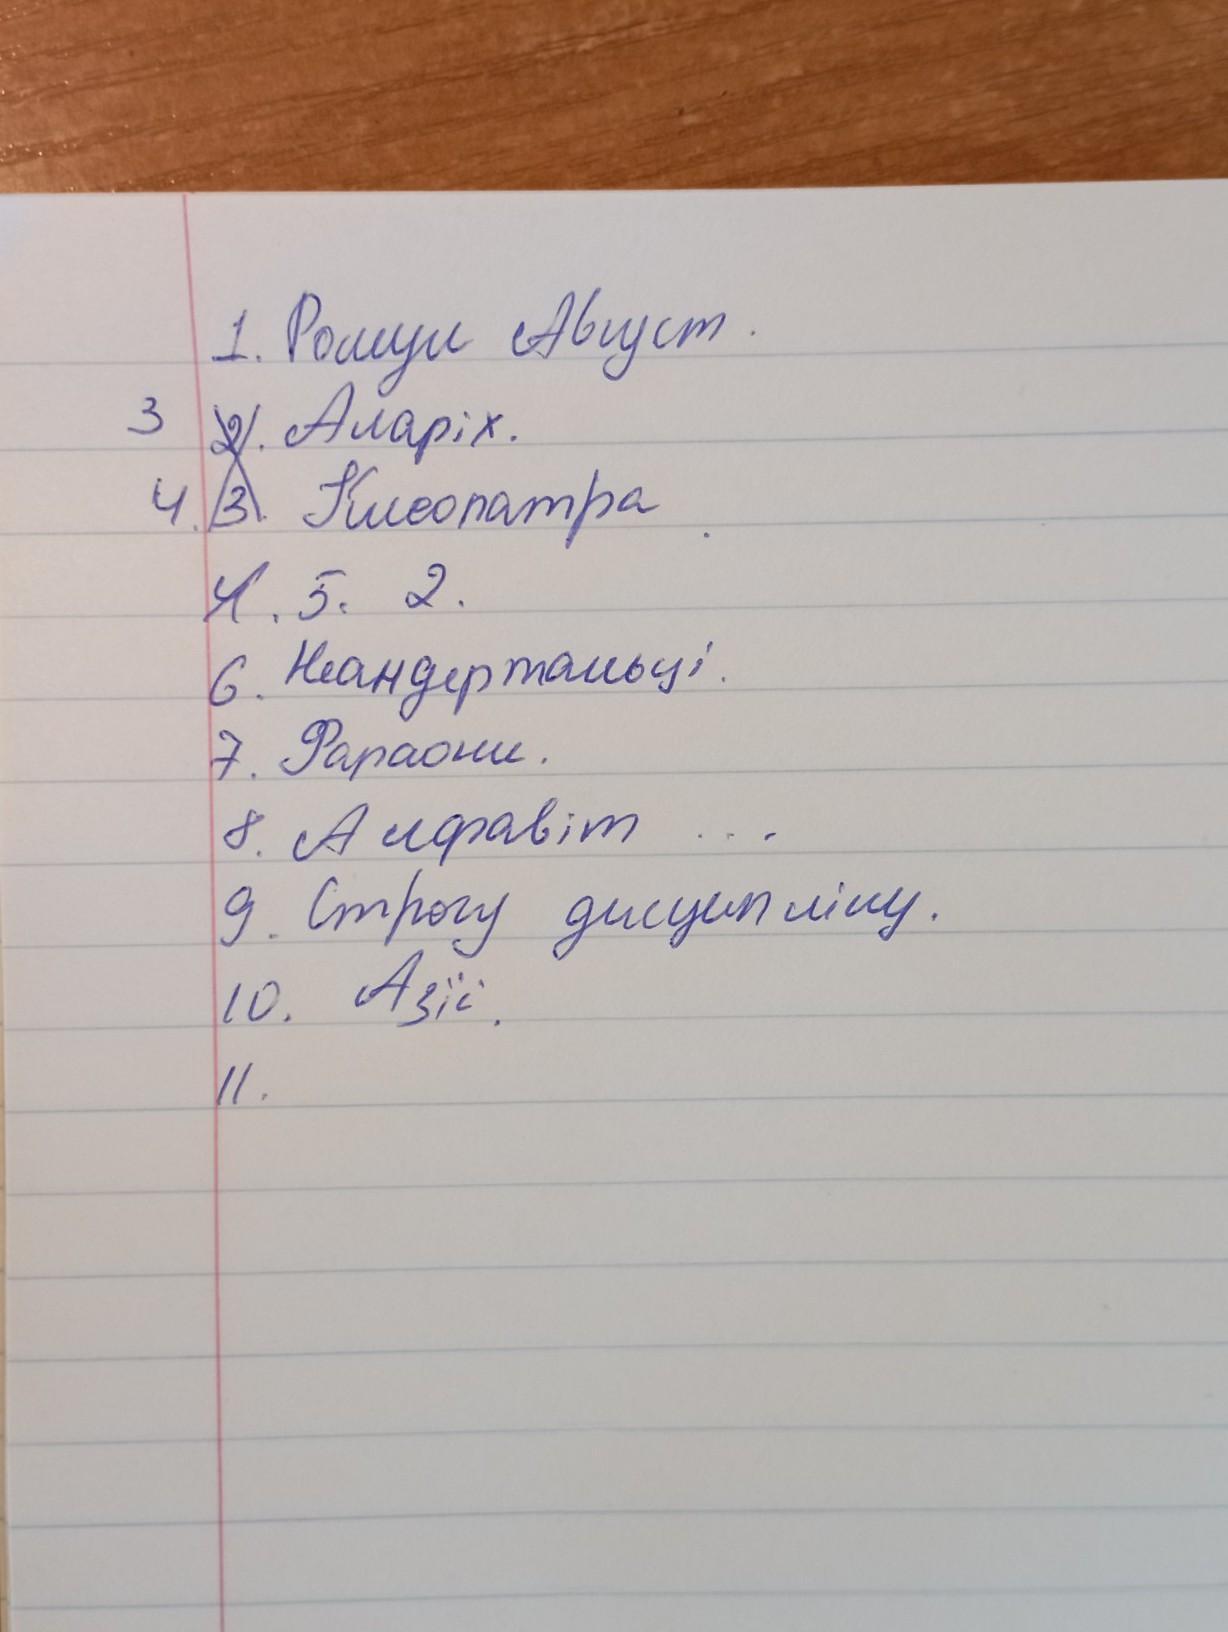 1. Ромул Август.
3 2. Аларіх.
4. 3. Клеопатра.
4. 5. 2.
6. Неандертальці.
7. Фараони.
8. Алфавіт ...
9. Строгу дисципліну.
10. Азії.
11.